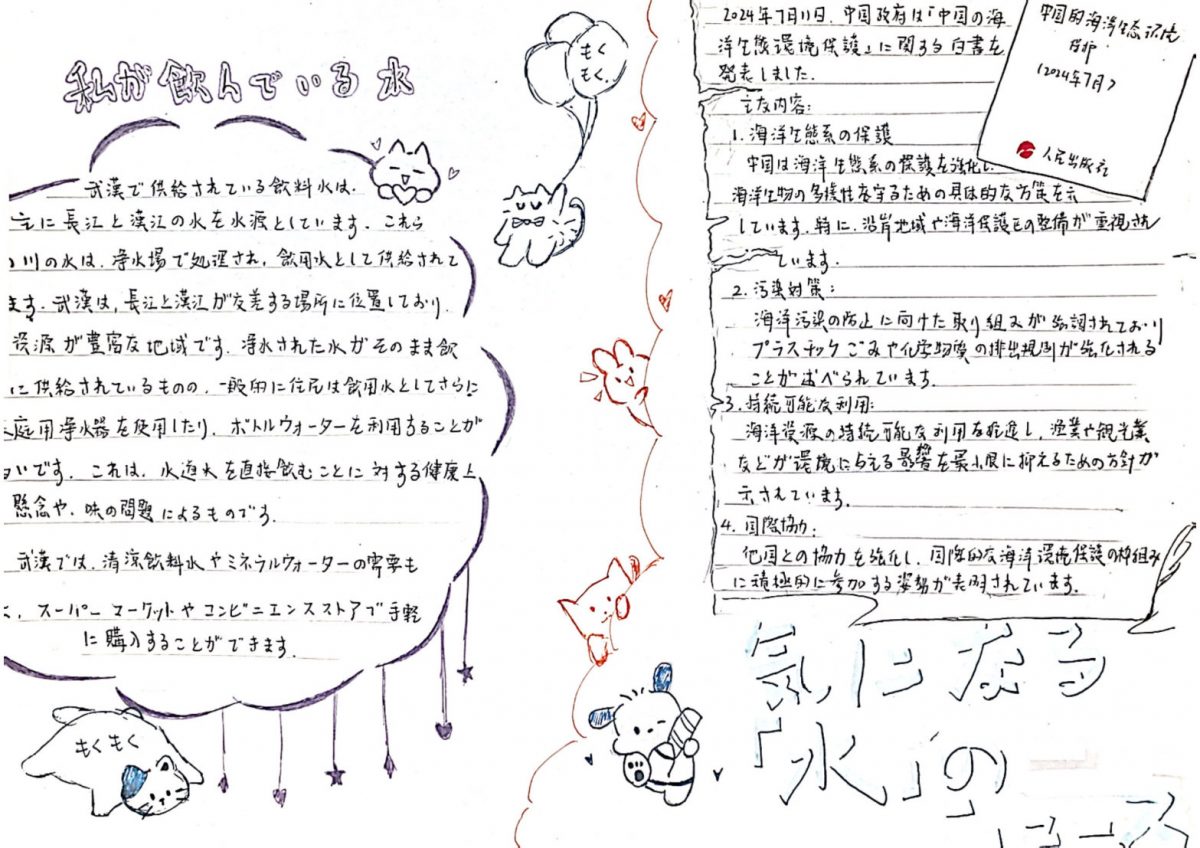 私が飲んでいる水
武漢で供給されている飲料水は、
主に長江と漢江の水を水源としています。これら
川の水は、浄水場で処理され、飲用水として供給されて
ます。武漢は、長江と漢江が交差する場所に位置しており、
資源が豊富な地域です。浄水された水がそのまま飲
に供給されているものの、一般的に住民は飲用水としてさらに
庭用浄水器を使用したり、ボトルウォーターを利用することが
いです。これは、水道水を直接飲むことに対する健康上
懸念や、味の問題によるものです。
武漢では、清涼飲料水やミネラルウォーターの需要も
、スーパーマーケットやコンビニエンスストアで手軽
に購入することができます。
もくもく
もく
もく
2024年7月11日、中国政府は「中国の海
洋生態環境保護」に関する白書を
発表しました。
主な内容:
1. 海洋生態系の保護
中国は海洋生態系の保護を強化し
海洋生物の多様性を守るための具体的な方策を示
しています。特に、沿岸地域や海洋保護区の整備が重視され
ています。
2. 汚染対策:
海洋汚染の防止に向けた取り組みが強調されており
プラスチックごみや化学物質の排出規制が強化される
ことが述べられています。
3. 持続可能な利用:
海洋資源の持続可能な利用を推進し、漁業や観光業
などが環境に与える影響を最小限に抑えるための方針が
示されています。
4. 国際協力:
他国との協力を強化し、国際的な海洋環境保護の枠組み
に積極的に参加する姿勢が表明されています。
中国的海洋生态环境
保护
(2024年7月)
人民出版社
気になる
「水」の
ニュース